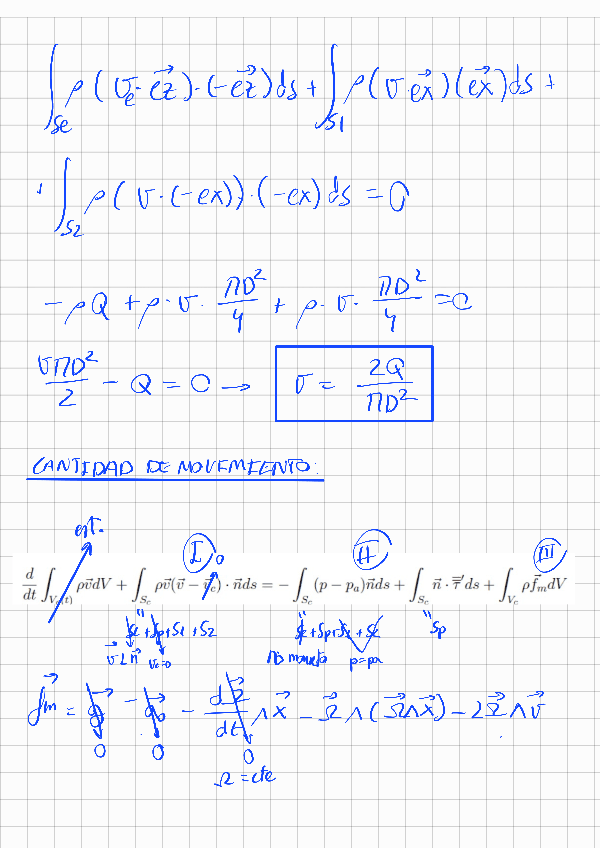 ∫_{Se} ρ(v_e·\vec{ez})·(-\vec{ez})ds + ∫_{S1} ρ(v·\vec{ex})(\vec{ex})ds +
+ ∫_{S2} ρ(v·(-ex))·(-ex)ds = 0
-ρQ + ρ·v·\frac{ΠD^2}{4} + ρ·v·\frac{ΠD^2}{4} = 0
\frac{vΠD^2}{2} - Q = 0 → v = \frac{2Q}{ΠD^2}
CANTIDAD DE MOVIMIENTO:
est. I 0 II III
\frac{d}{dt} ∫_{V_c(t)} ρ\vec{v}dV + ∫_{S_c} ρ\vec{v}(\vec{v} - \vec{v}_c)·\vec{n}ds = -∫_{S_c} (p - p_a)\vec{n}ds + ∫_{S_c} \vec{n}·\overline{\overline{τ}}'ds + ∫_{V_c} ρ\vec{f}_m dV
" Se + Sp + S1 + S2 " Se + Sp + S1 + S2 " Sp
\vec{v}⊥\vec{n} v_c=0 No momento p=pa
\vec{fm} = \vec{g} - \vec{a_0} - \frac{d\vec{Ω}}{dt} ∧ \vec{x} - \vec{Ω} ∧ (\vec{Ω} ∧ \vec{x}) - 2\vec{Ω} ∧ \vec{v}
0 0 0
Ω = cte